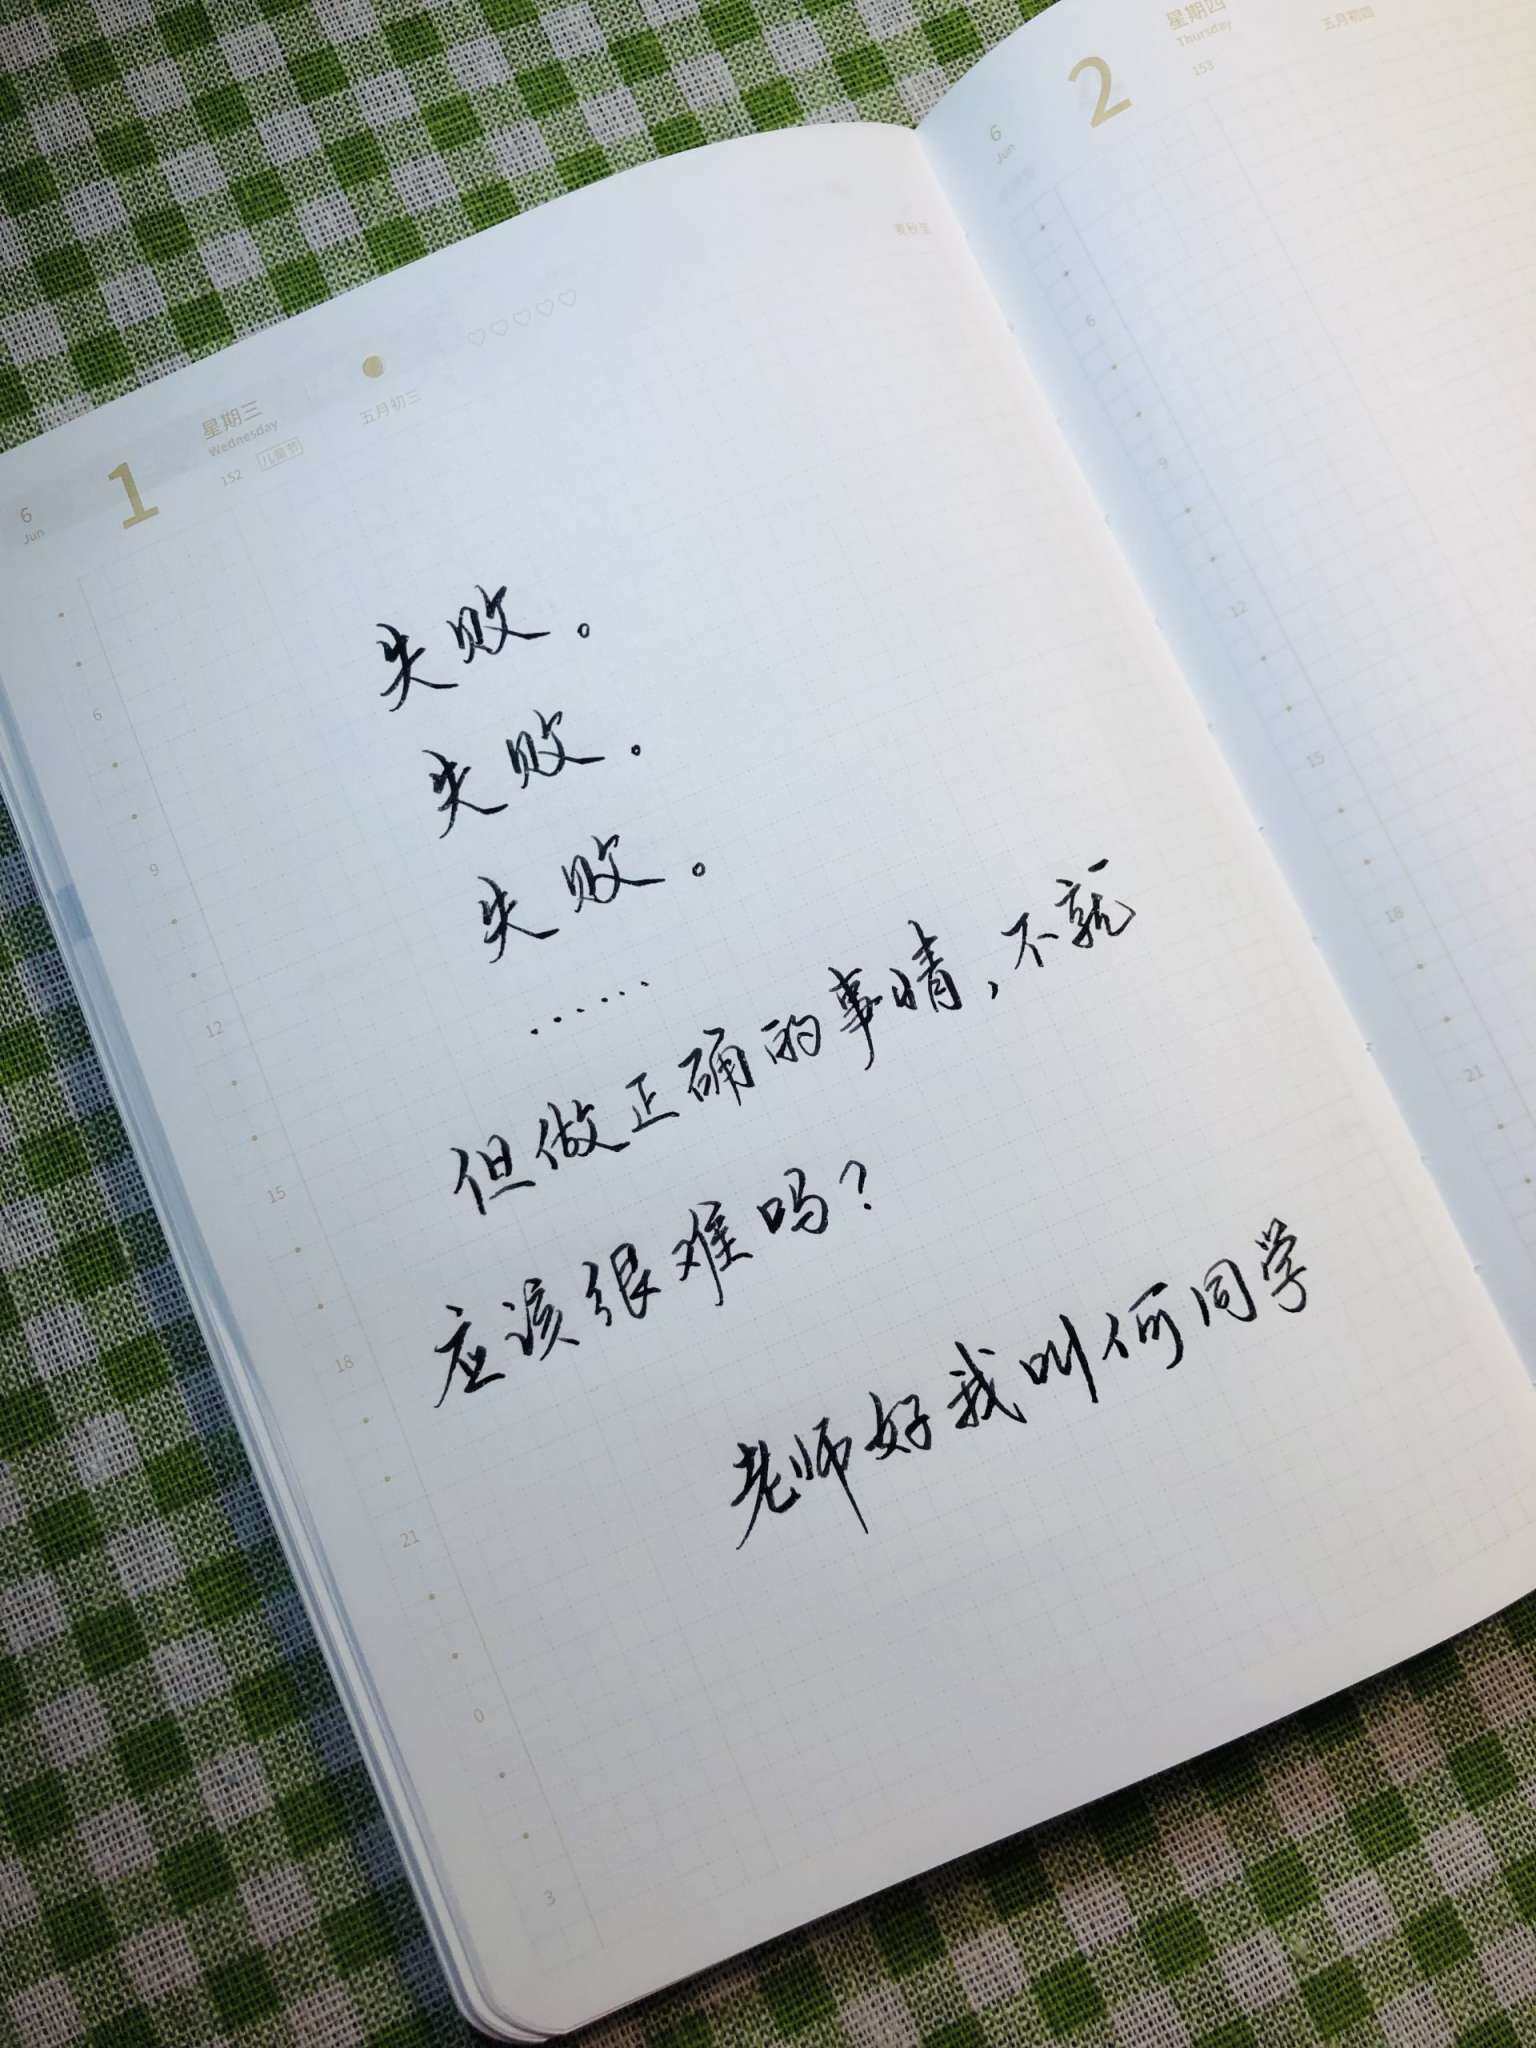 6
Jun
1
星期三
Wednesday
152
儿童节
五月初三
6
Jun
2
星期四
Thursday
153
五月初四
失败。
失败。
失败。
……
但做正确的事情,不就
应该很难吗?
老师好我叫何同学
6
9
12
15
18
21
0
3
6
9
12
15
18
21